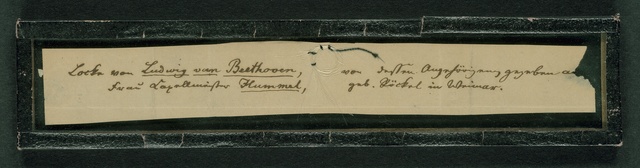 Locke von Ludwig van Beethoven, von dessen Angehörigen, gegeben an
Frau Capellmeister Hummel, geb. Röckel in Weimar.